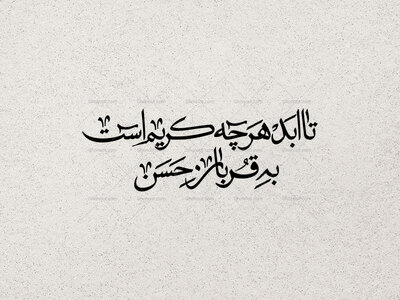 تا ابد هر چه کریم است
به قربان حسن